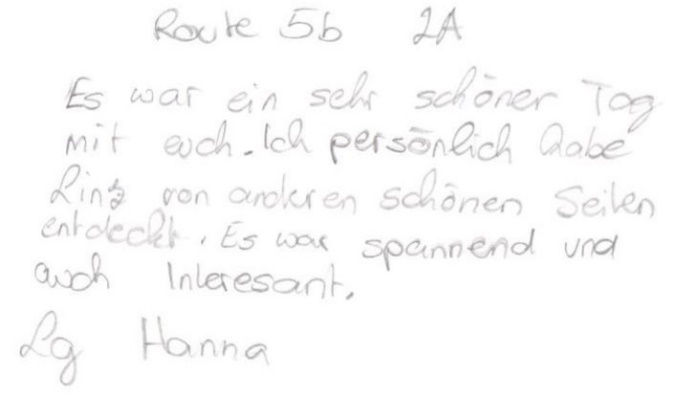 Route 5b 2A
Es war ein sehr schöner Tag
mit euch. Ich persönlich habe
Linz von anderen schönen Seiten
entdeckt. Es war spannend und
auch Interesant.
Lg Hanna